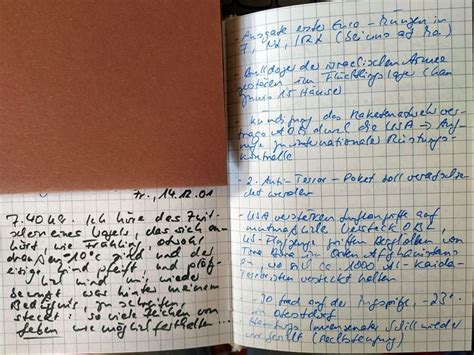 Fr., 14.12.01
7.40 Uhr. Ich höre das Zwit-
schern eines Vogels, das sich an-
hört, wie Frühling, obwohl
draußen -10°C sind und der
eisige Wind pfeift und plötz-
lich wird mir wieder
bewusst was hinter meinem
Bedürfnis zu schreiben
steckt: so viele Zeichen von
Leben wie möglich festhalten...
Ausgabe erster Euro-Münzen in
F, NL, IRL (bei uns ab Mo.)
- Bulldozer der israelischen Armee
zerstören im Flüchtlingslager Chan
Yunis 15 Häuser
- Kündigung des Raketenabwehrver-
trags ABM durch die USA →
internationaler Rüstungs-
kontrolle
- 2. Anti-Terror-Paket soll verabschie-
det werden
- USA verstärken Luftangriffe auf
mutmaßliche Verstecke OBL,
US-Flugzeuge greifen Berghöhlen von
Tora Bora im Osten Afghanistans
an, wo sich ca. 1000 Al-Kaida-
Terroristen versteckt halten
- -30 Grad auf der Zugspitze, -23°
in Oberstdorf
- Hamburgs Innensenator Schill wieder